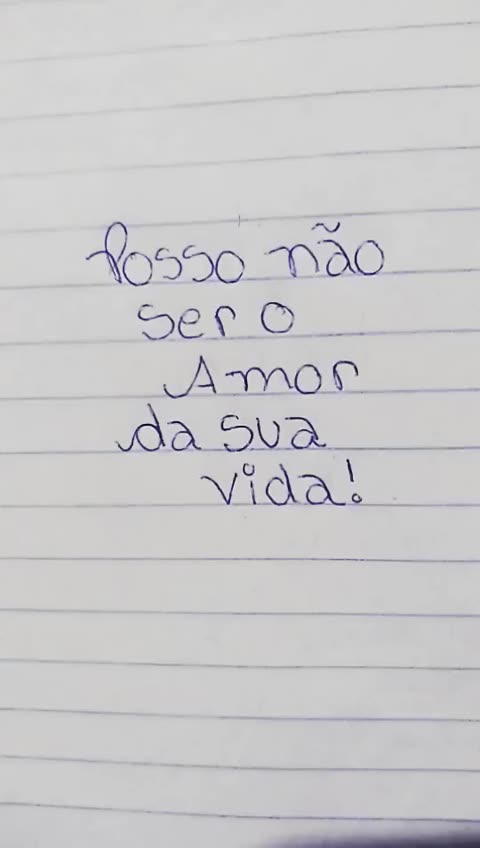 Posso não
ser o
Amor
da sua
vida!